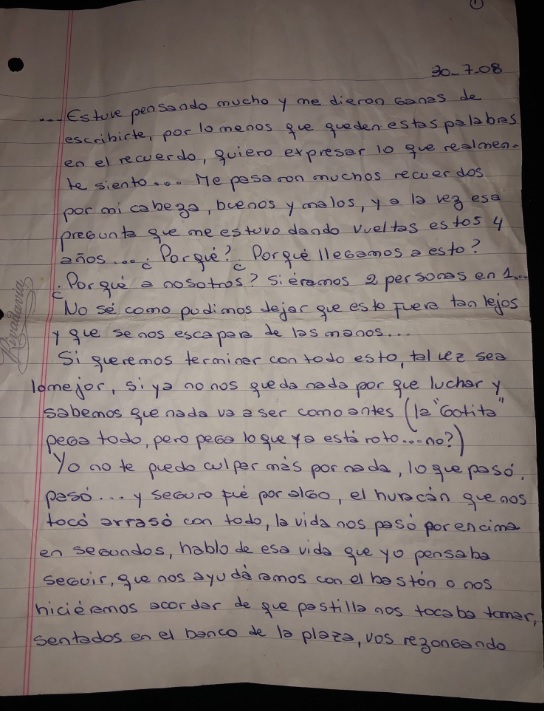 1
30-7-08
...Estuve pensando mucho y me dieron ganas de
escribirte, por lo menos que queden estas palabras
en el recuerdo, quiero expresar lo que realmen-
te siento... Me pasaron muchos recuerdos
por mi cabeza, buenos y malos, y a la vez esa
pregunta que me estuvo dando vueltas estos 4
años... ¿Porqué? ¿Porqué llegamos a esto?
¿Porqué a nosotros? Si éramos 2 personas en 1...
No sé como pudimos dejar que esto fuera tan lejos
y que se nos escapara de las manos...
Si queremos terminar con todo esto, tal vez sea
lo mejor, si ya no nos queda nada por que luchar y
sabemos que nada va a ser como antes (la "Gotita"
pega todo, pero pega lo que ya está roto...no?)
Yo no te puedo culpar más por nada, lo que pasó,
pasó... y seguro fué por algo, el huracán que nos
tocó arrasó con todo, la vida nos pasó por encima
en segundos, hablo de esa vida que yo pensaba
seguir, que nos ayudáramos con el bastón o nos
hiciéramos acordar de que pastilla nos tocaba tomar,
sentados en el banco de la plaza, vos rezongando
Rivadavia